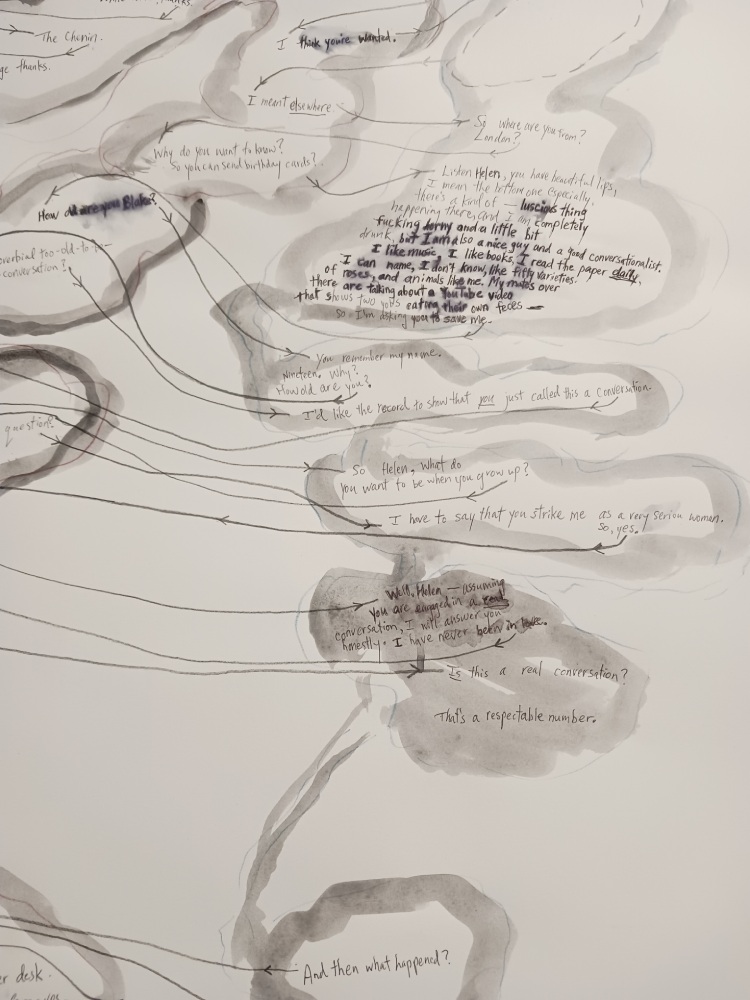 The Chenin.
thanks.
I think you're wanted.
I meant elsewhere.
So where are you from?
London?
Why do you want to know?
So you can send birthday cards?
Listen Helen, you have beautiful lips,
I mean the bottom one especially,
there's a kind of — luscious thing
happening there, and I am completely
fucking horny and a little bit
drunk, but I am also a nice guy and a good conversationalist.
I like music, I like books, I read the paper daily,
I can name, I don't know, like fifty varieties
of roses, and animals like me. My mates over
there are talking about a YouTube video
that shows two guys eating their own feces —
so I'm asking you to save me.
How old are you Blake?
proverbial too-old-to-
conversation?
You remember my name.
Nineteen. Why?
How old are you?
I'd like the record to show that you just called this a conversation.
question?
So Helen, what do
you want to be when you grow up?
I have to say that you strike me as a very serious woman.
So, yes.
Well, Helen — assuming
you are engaged in a real
conversation, I will answer you
honestly. I have never been in love.
Is this a real conversation?
That's a respectable number.
And then what happened?
desk.